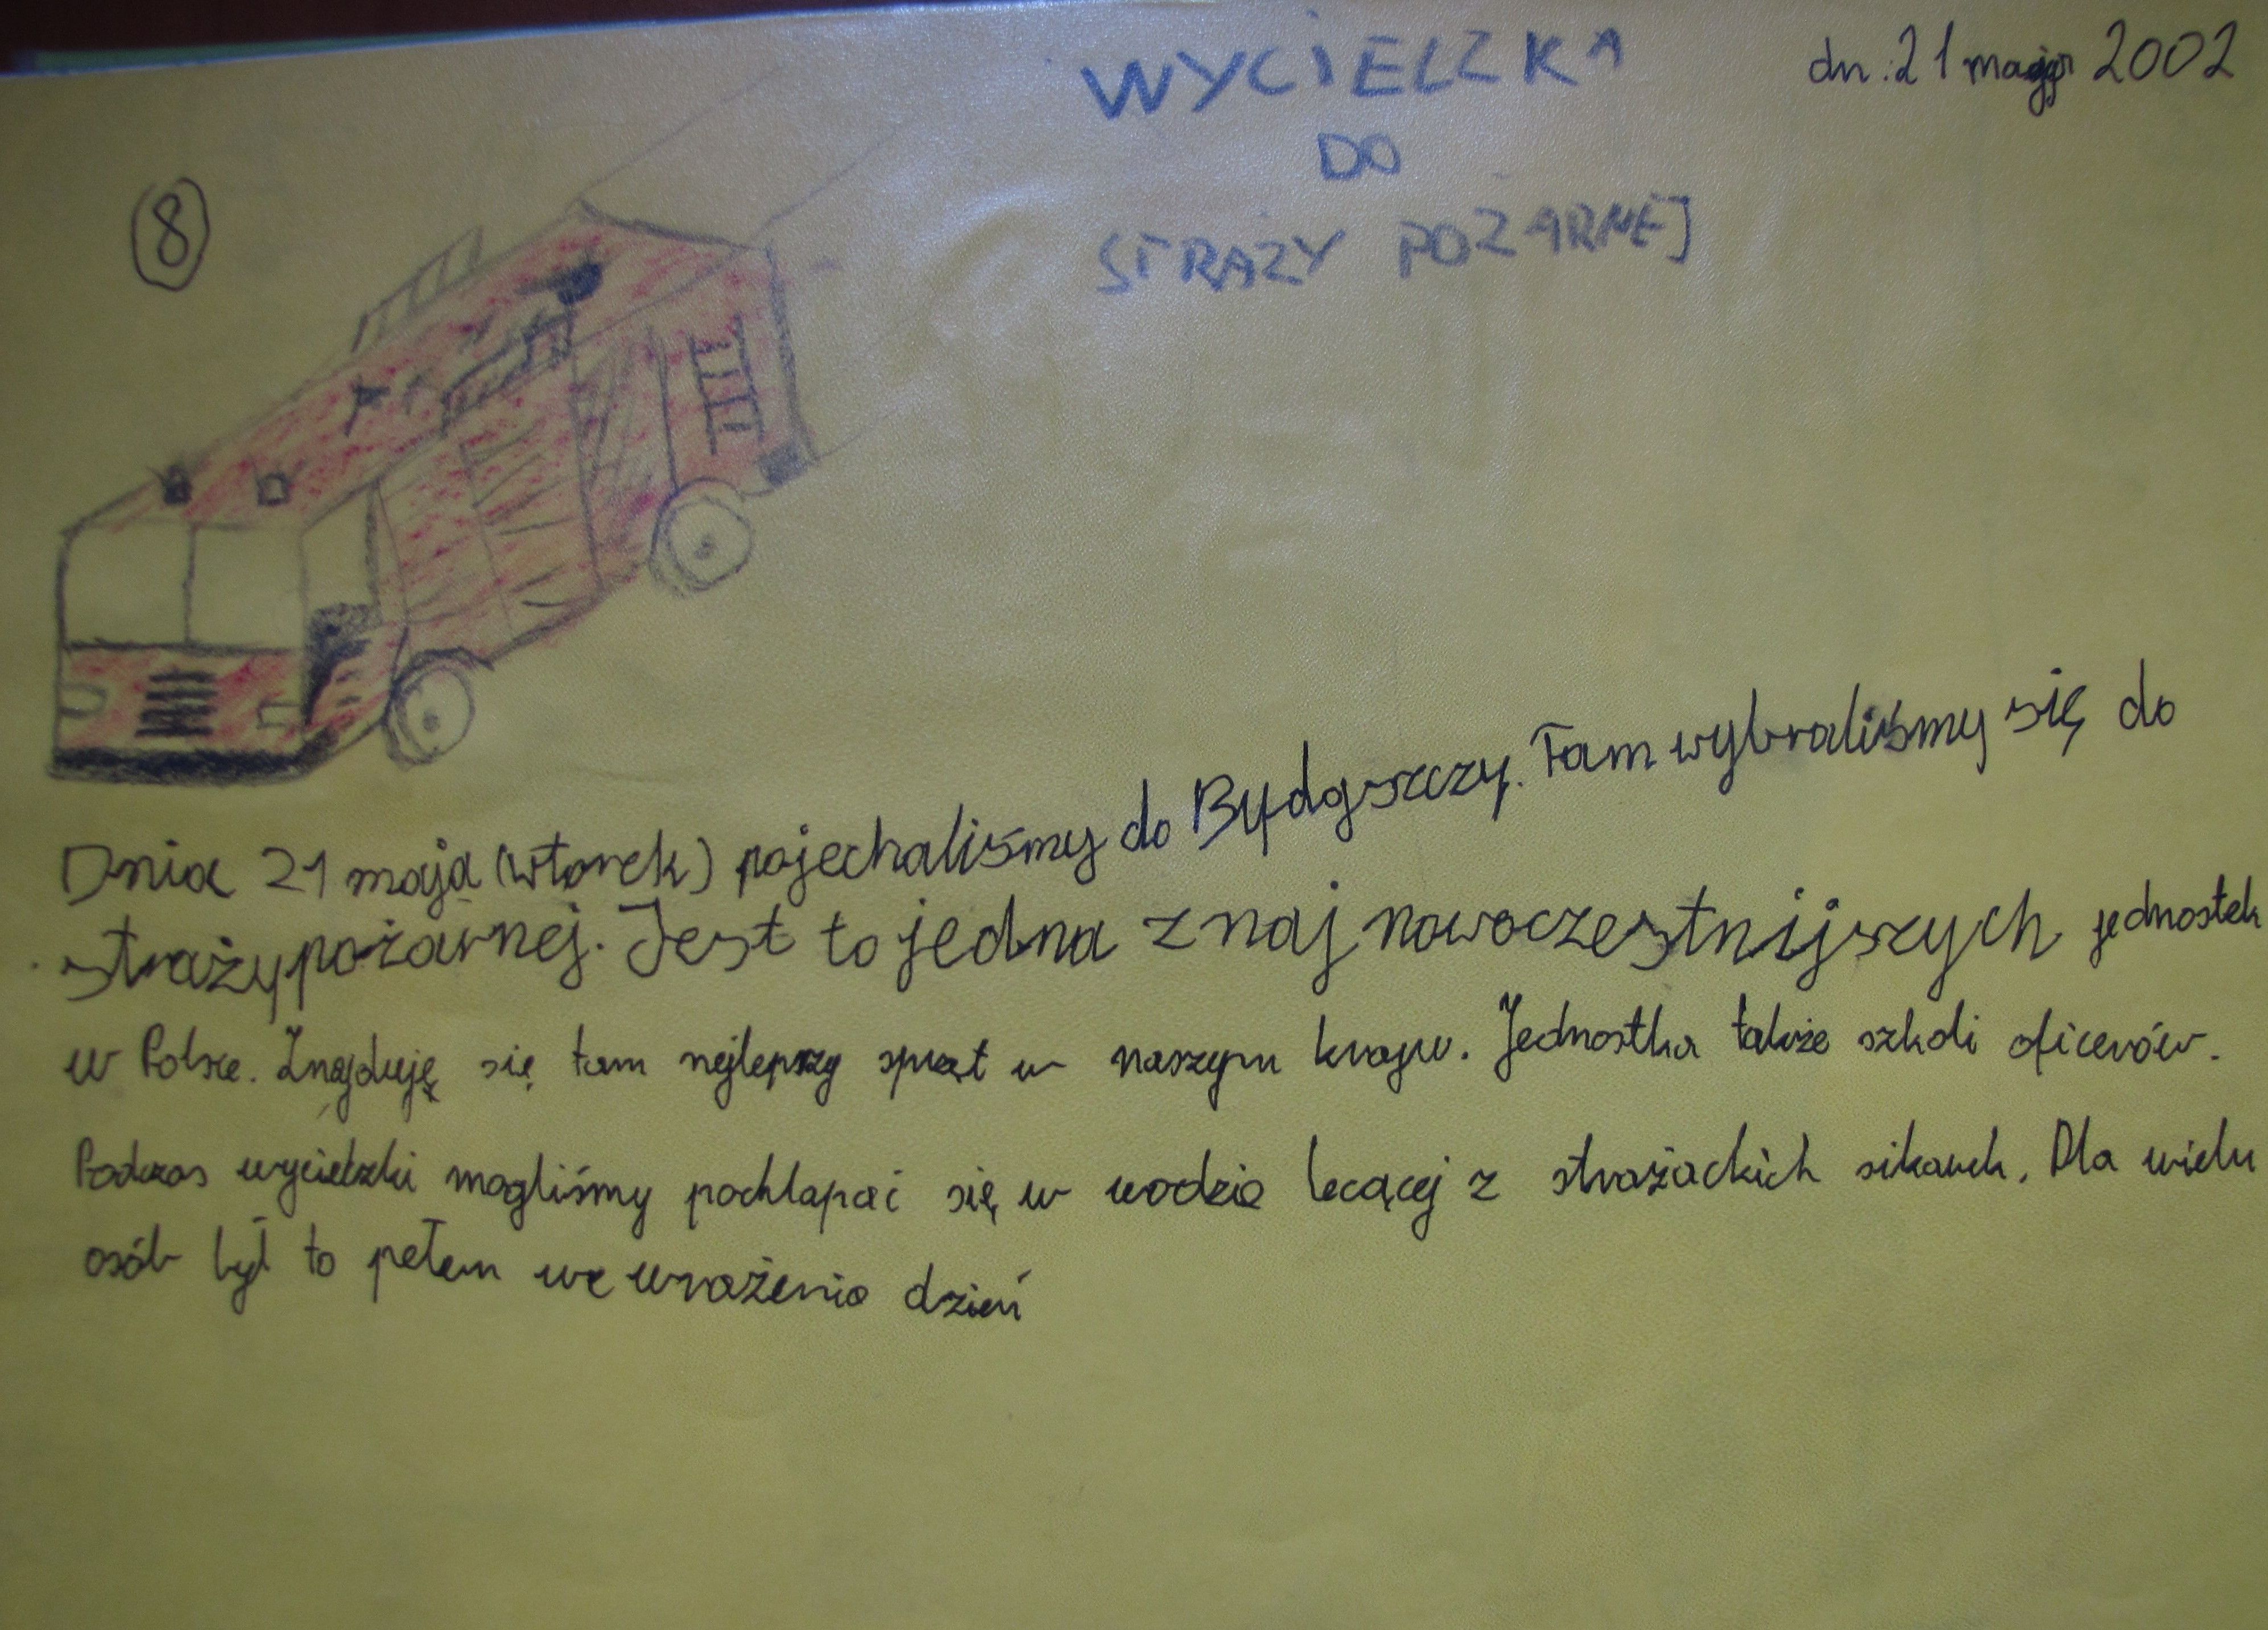 WYCIECZKA
dn. 21 maja 2002
DO
8
STRAŻY POŻARNEJ
Dnia 21 maja (wtorek) pojechaliśmy do Bydgoszczy. Tam wybraliśmy się do
straży pożarnej. Jest to jedna z naj nowoczestnijszych jednostek
w Polsce. Znajduję się tam nejlepszy sprzęt w naszym kraju. Jednostka także szkoli oficerów.
Podczas wycieczki mogliśmy pochlapać się w wodzie lecącej z strażackich sikawek. Dla wielu
osób był to pełen we wrażenia dzień